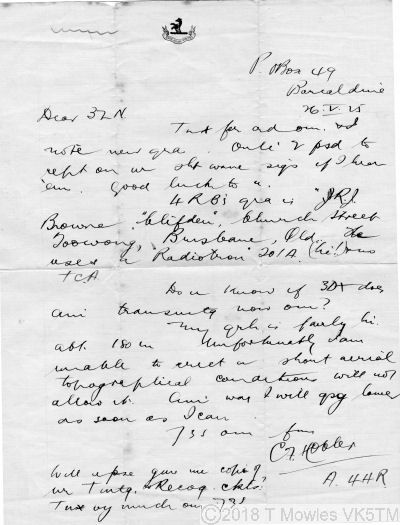 P. O Box 49
Barcaldine
26.V.25
Dear 3LN.
Tnx for crd om. &
note new qra. Only 2 psd to
rept on ur sht wave sigs if I hear
em. Good luck to u.
4RB's qra is "J.R.J.
Browne. "Clifden", Church Street
Toowong, Brisbane, Qld. He
uses a Radiotron 201A. (hi!)
TCA
Do u know if 3DX does
ani transmtg now om?
My qrh. is fairly hi.
abt. 180 m Unfortunately I am
unable to erect a short aerial
topographical conditions will not
allow it. Ani was I will qsy lower
as soon as I can.
73s om fm
C. F. Hobler
A. 4AR
Will u pse give me copy of
ur Tmtg. & Recvg. ckts.
Tnx vy much om 73s
©2018 T Mowles VK5TM